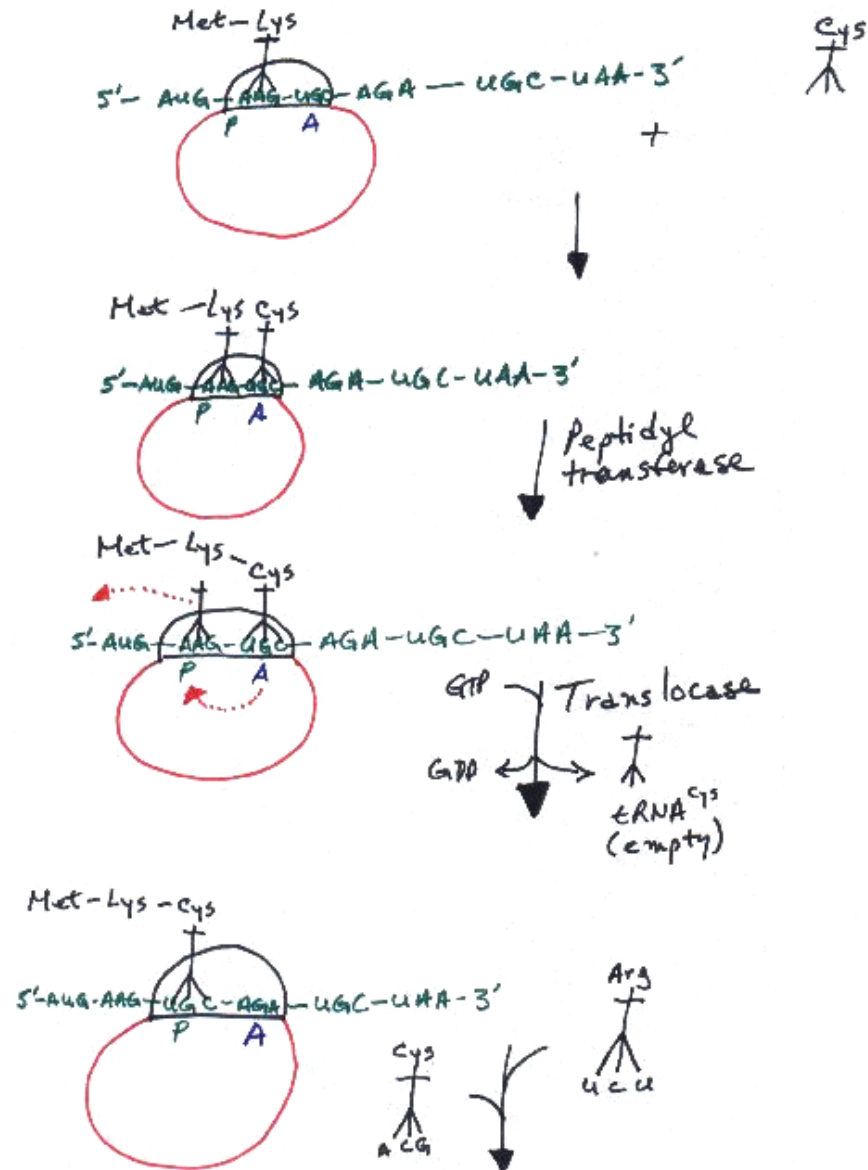 Met-Lys
Cys
5'- AUG-AAG-UGC-AGA-UGC-UAA-3'
P A
+
Met-Lys Cys
5'-AUG-AAG-UGC-AGA-UGC-UAA-3'
P A
Peptidyl
transferase
Met-Lys-Cys
5'-AUG-AAG-UGC-AGA-UGC-UAA-3'
P A
GTP
Translocase
GDP
tRNA^Cys
(empty)
Met-Lys-Cys
5'-AUG-AAG-UGC-AGA-UGC-UAA-3'
P A
Arg
UCU
Cys
ACG